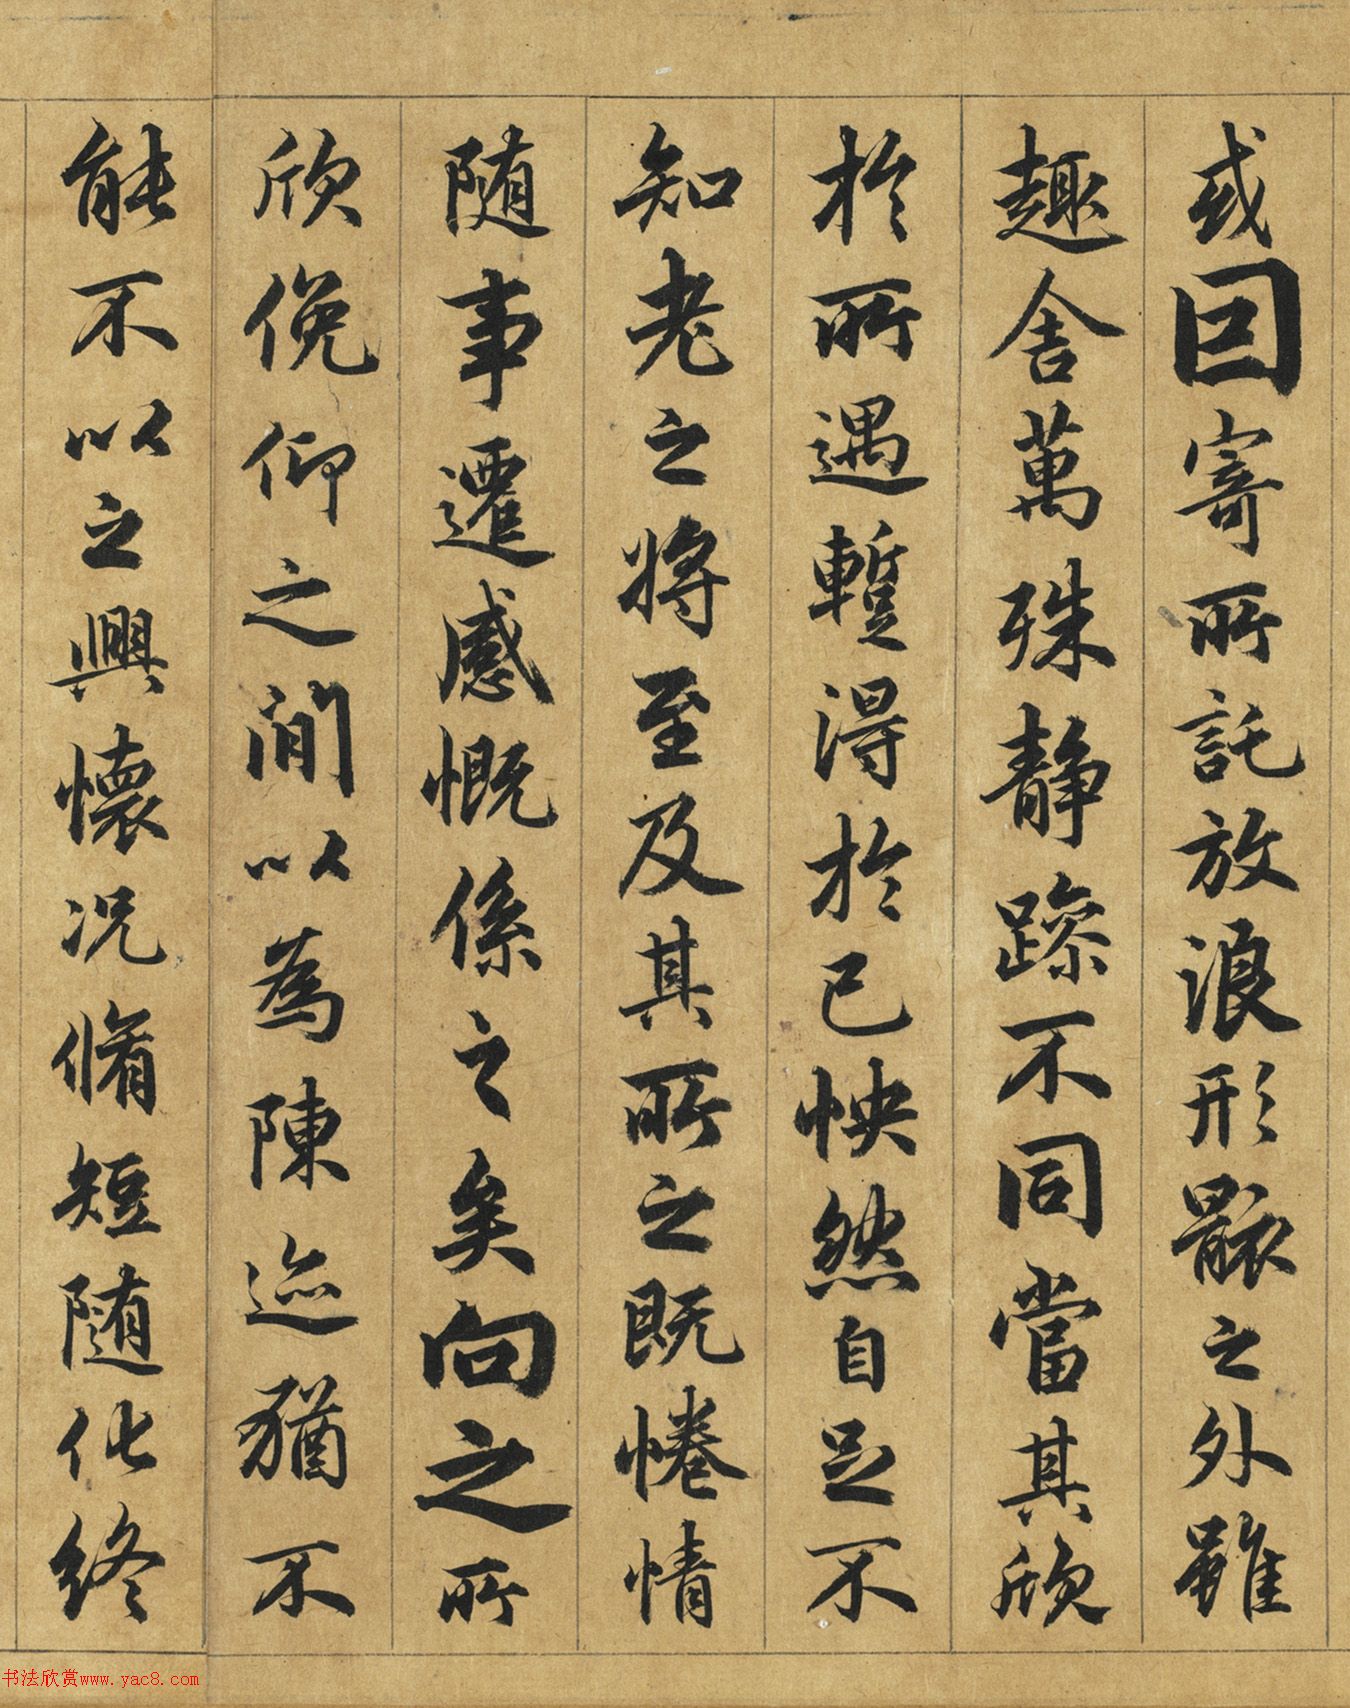 或因寄所託放浪形骸之外雖
趣舍萬殊静躁不同當其欣
於所遇蹔得於己怏然自足不
知老之將至及其所之既惓情
随事遷感慨係之矣向之所
欣俛仰之間以為陳迹猶不
能不以之興懷况脩短随化終
书法欣赏www.yac8.com